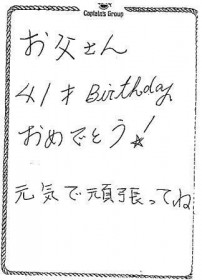 Captain's Group
お父さん
41才 Birthday
おめでとう!
元気で頑張ってね